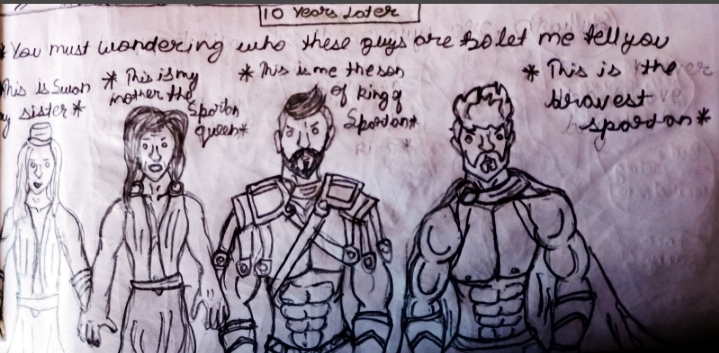 10 Years Later
* You must wondering who these guys are so let me tell you
This is Swon
y sister *
* This is my
mother the
Sparton
queen*
* This is me the son
of King of
Sparton*
* This is the
bravest
sparton*